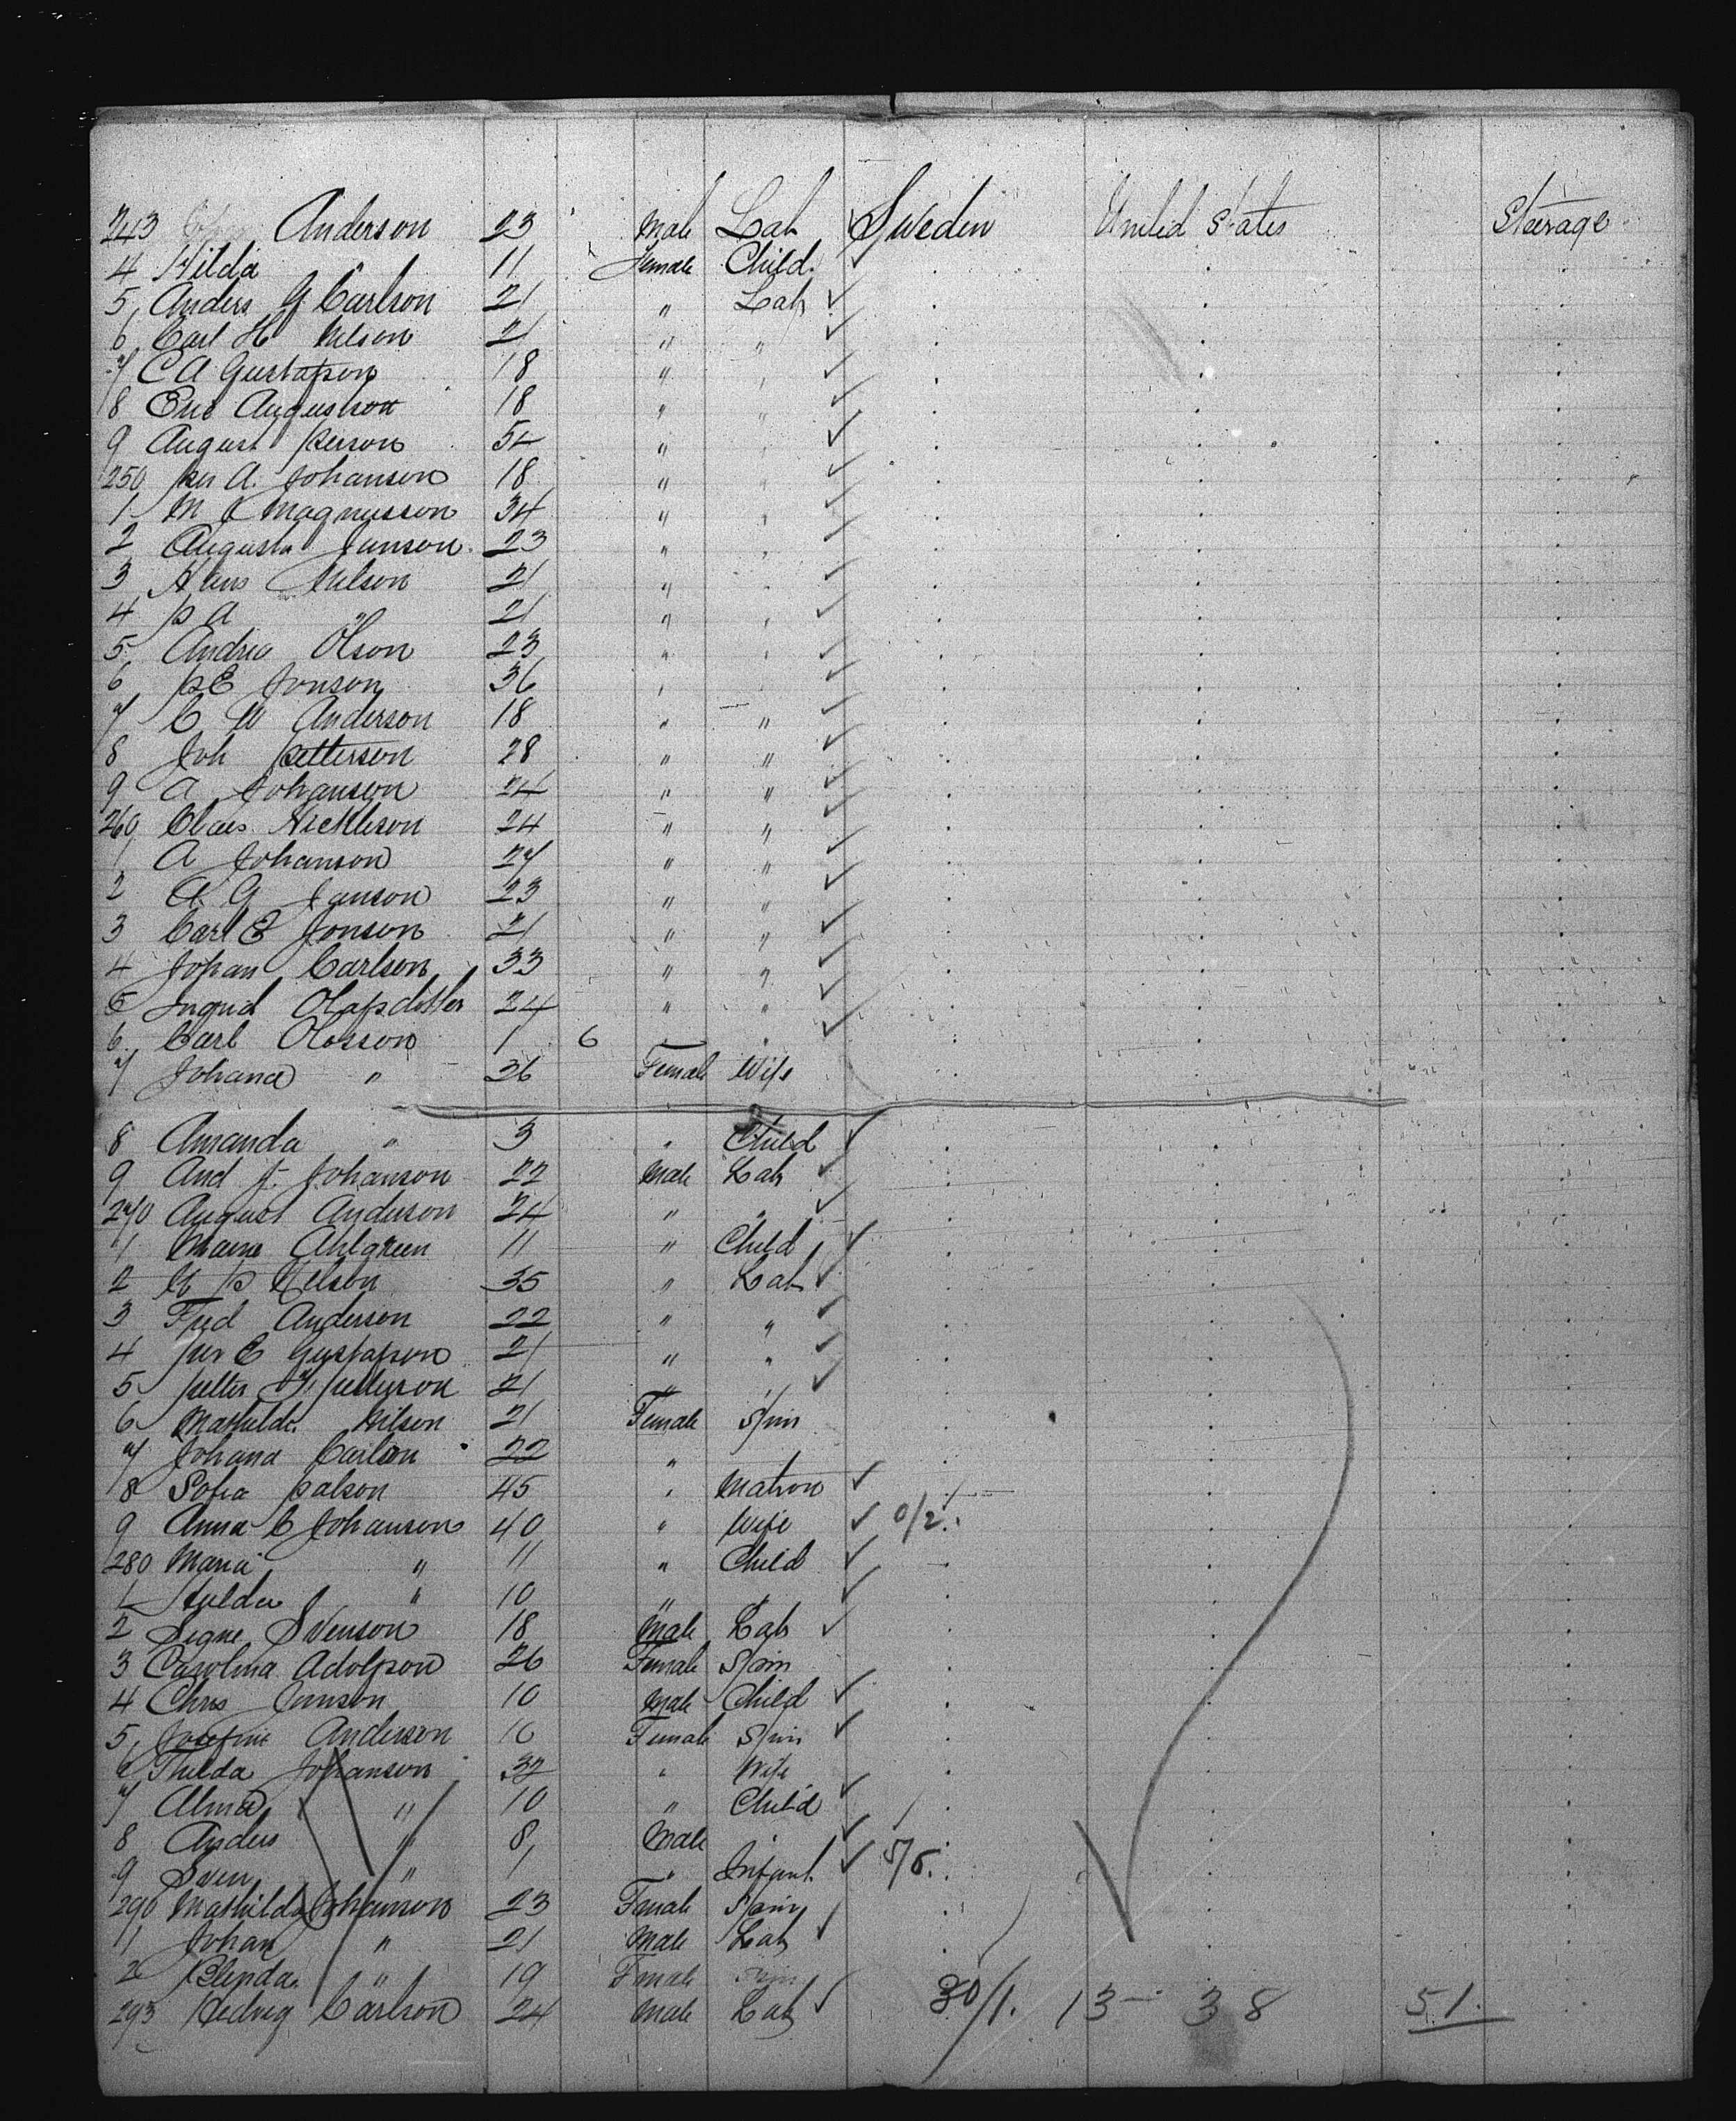 243 Anderson 23 Male Lab Sweden United States Steerage
4 Hilda " 11 Female Child
5 Anders G Carlson 21 " Lab
6 Carl H Nelson 21 " "
7 C A Gustafson 18 " "
8 Eric Augustson 18 " "
9 August Person 54 " "
250 Per A. Johanson 18 " "
1 M J Magnusson 34 " "
2 Augusta Janson 23 " "
3 Hans Nelson 21 " "
4 P A " 21 " "
5 Andrea Olson 23 " "
6 P E Jonson 36 " "
7 C W Anderson 18 " "
8 Joh Petterson 28 " "
9 A Johanson 24 " "
260 Claes Nickleson 24 " "
1 A Johanson 27 " "
2 A. G Janson 23 " "
3 Carl E Jonson 21 " "
4 Johan Carlson 33 " "
5 Ingrid Olafsdotter 24 " "
6 Carl Olosson 1 6 " "
7 Johana " 36 Female Wife
8 Amanda " 3 " Child
9 And J. Johanson 22 Male Lab
270 August Anderson 24 " "
1 Ahlgreen 11 " Child
2 N P Nelson 35 " Lab
3 Fred Anderson 22 " "
4 Per E Gustafson 21 " "
5 Petter Petterson 21 " "
6 Mathilda Nilson 21 Female Spin
7 Johana Carlson 22 "
8 Sofia Palson 45 " Matron
9 Anna C Johanson 40 " Wife 0/2
280 Maria " 11 " Child
1 Hulda " 10 " "
2 Signe Svenson 18 Male Lab
3 Carolina Adolfson 26 Female Spin
4 Chris Jonson 10 Male Child
5 Josefine Anderson 16 Female Spin
6 Thilda Johanson 32 " Wife
7 Alma " 10 " Child
8 Anders " 8 Male "
9 Sven " 1 " Infant 5/5
290 Mathilda Johanson 23 Female Spin
1 Johan " 21 Male Lab
2 Blenda " 19 Female Spin
293 Hedvig Carlson 24 Male Lab 30/1. 13 - 38 51.